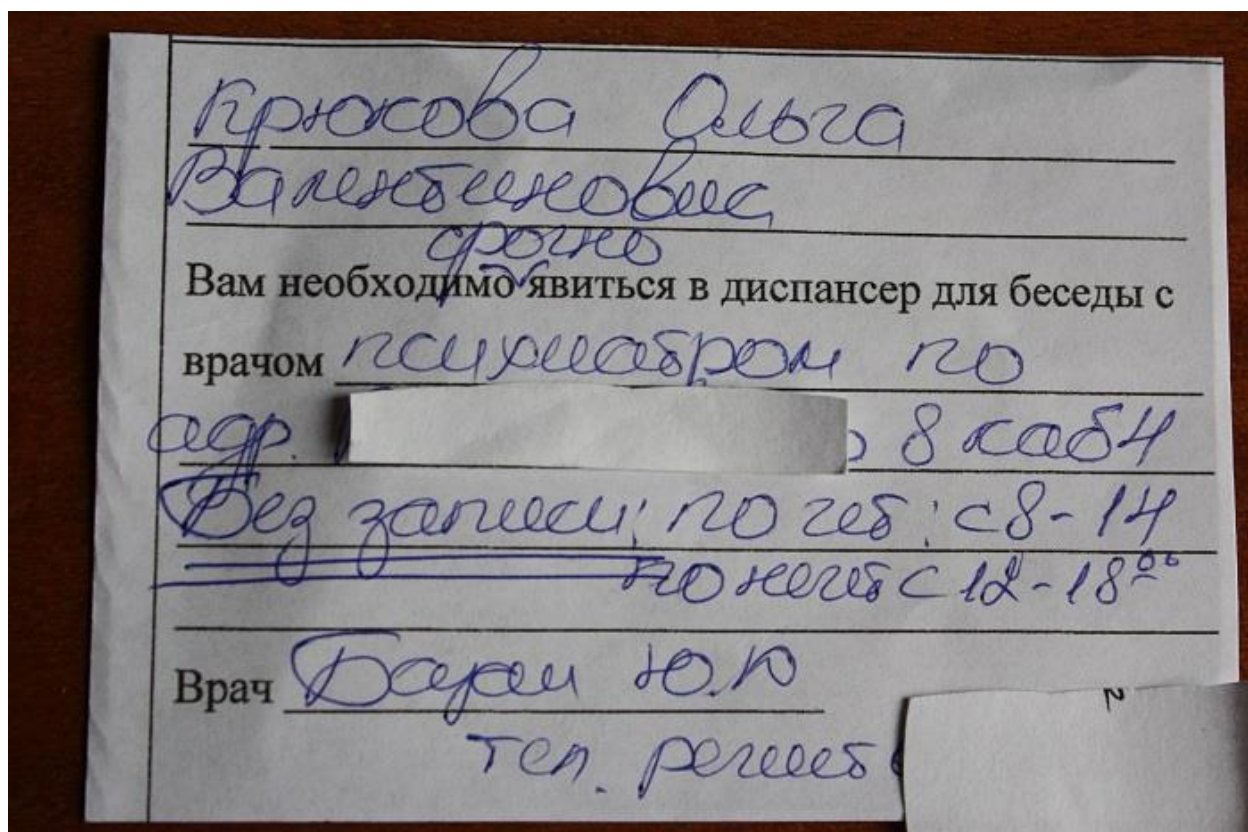 Крюкова Ольга
Валентиновна
срочно
Вам необходимо явиться в диспансер для беседы с
врачом психиатром по
адр. 8 каб 4
Без записи; по чет: с 8-14
по нечет с 12-18 ⁰⁰
Врач Ю.Ю
тел. регист